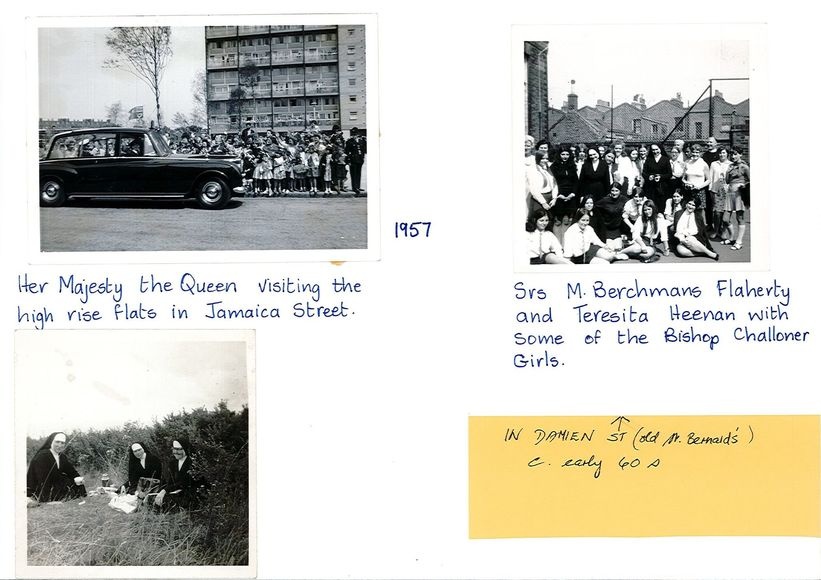 1957
Her Majesty the Queen visiting the
high rise flats in Jamaica Street.
Srs M. Berchmans Flaherty
and Teresita Heenan with
some of the Bishop Challoner
Girls.
IN DAMIEN ST (old St. Bernard's)
C. early 60s